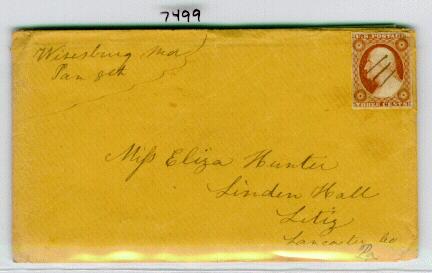 7499
Wisesburg Md
Jan 8th
U.S. POSTAGE
THREE CENTS
Miss Eliza Hunter
Linden Hall
Litiz
Lancaster Co
Pa